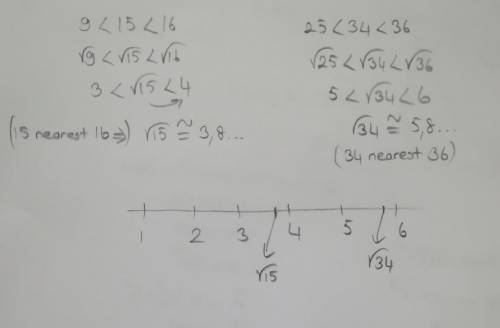 9 < 15 < 16
√9 < √15 < √16
3 < √15 < 4
(15 nearest 16 ⇒) √15 ≅ 3,8...
25 < 34 < 36
√25 < √34 < √36
5 < √34 < 6
√34 ≅ 5,8...
(34 nearest 36)
1 2 3 4 5 6
√15 √34